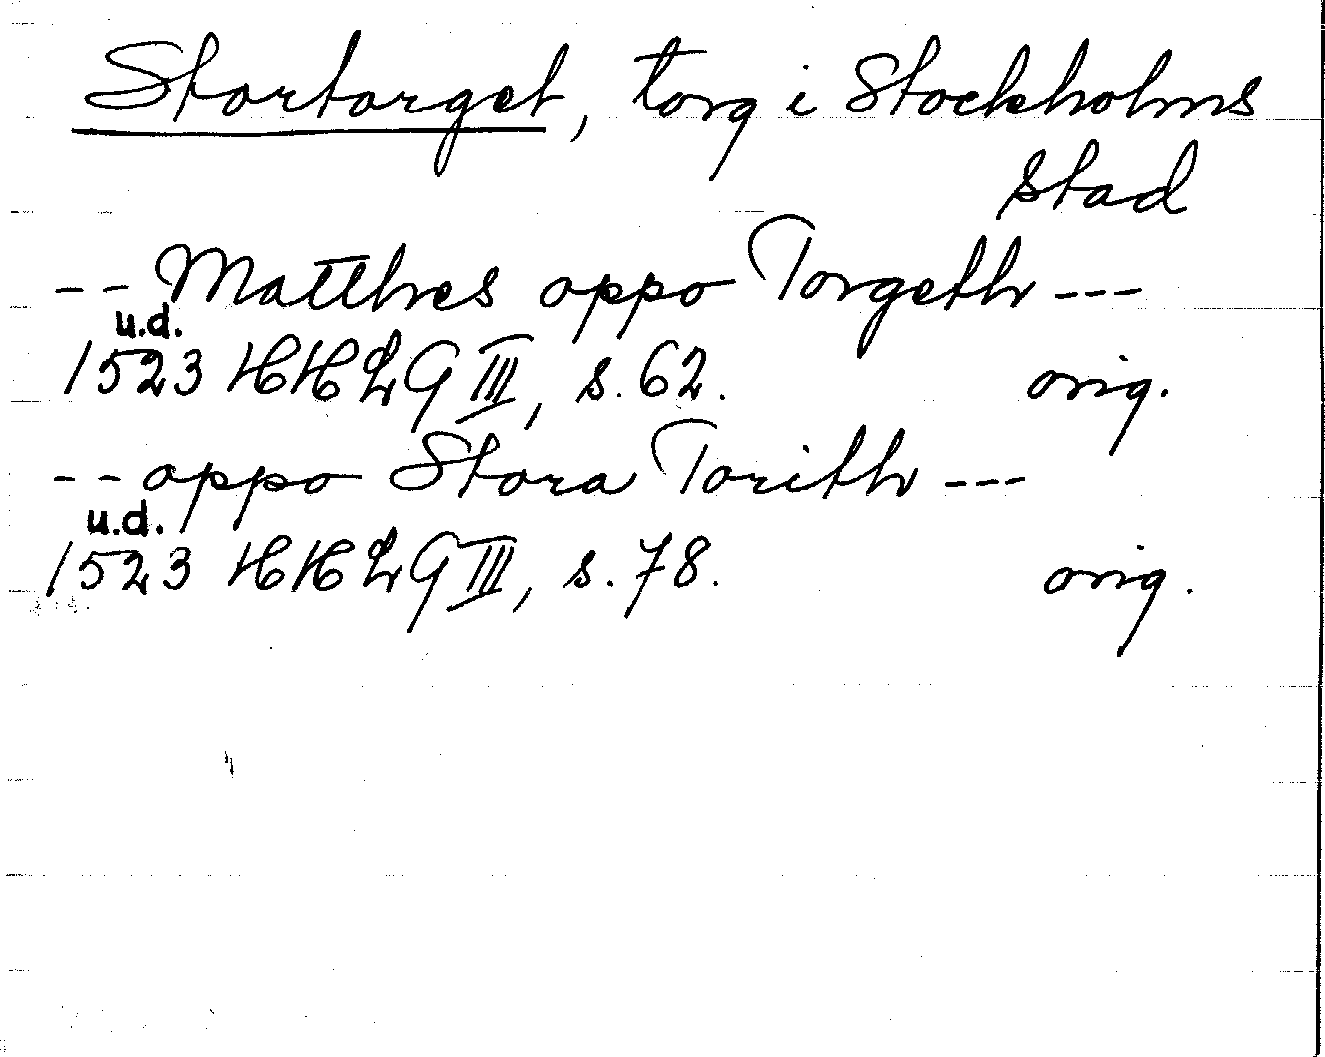 Stortorget, torg i Stockholms
stad
-- Matthes oppo Torgeth ---
u.d.
1523 HHLG III, s. 62. orig.
-- oppo Stora Torith ---
u.d.
1523 HHLG III, s. 78. orig.